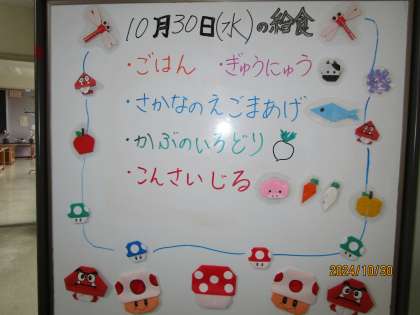 10月30日(水)の給食
・ごはん ・ぎゅうにゅう
・さかなのえごまあげ
・かぶのいろどり
・こんさいじる
2024/10/30